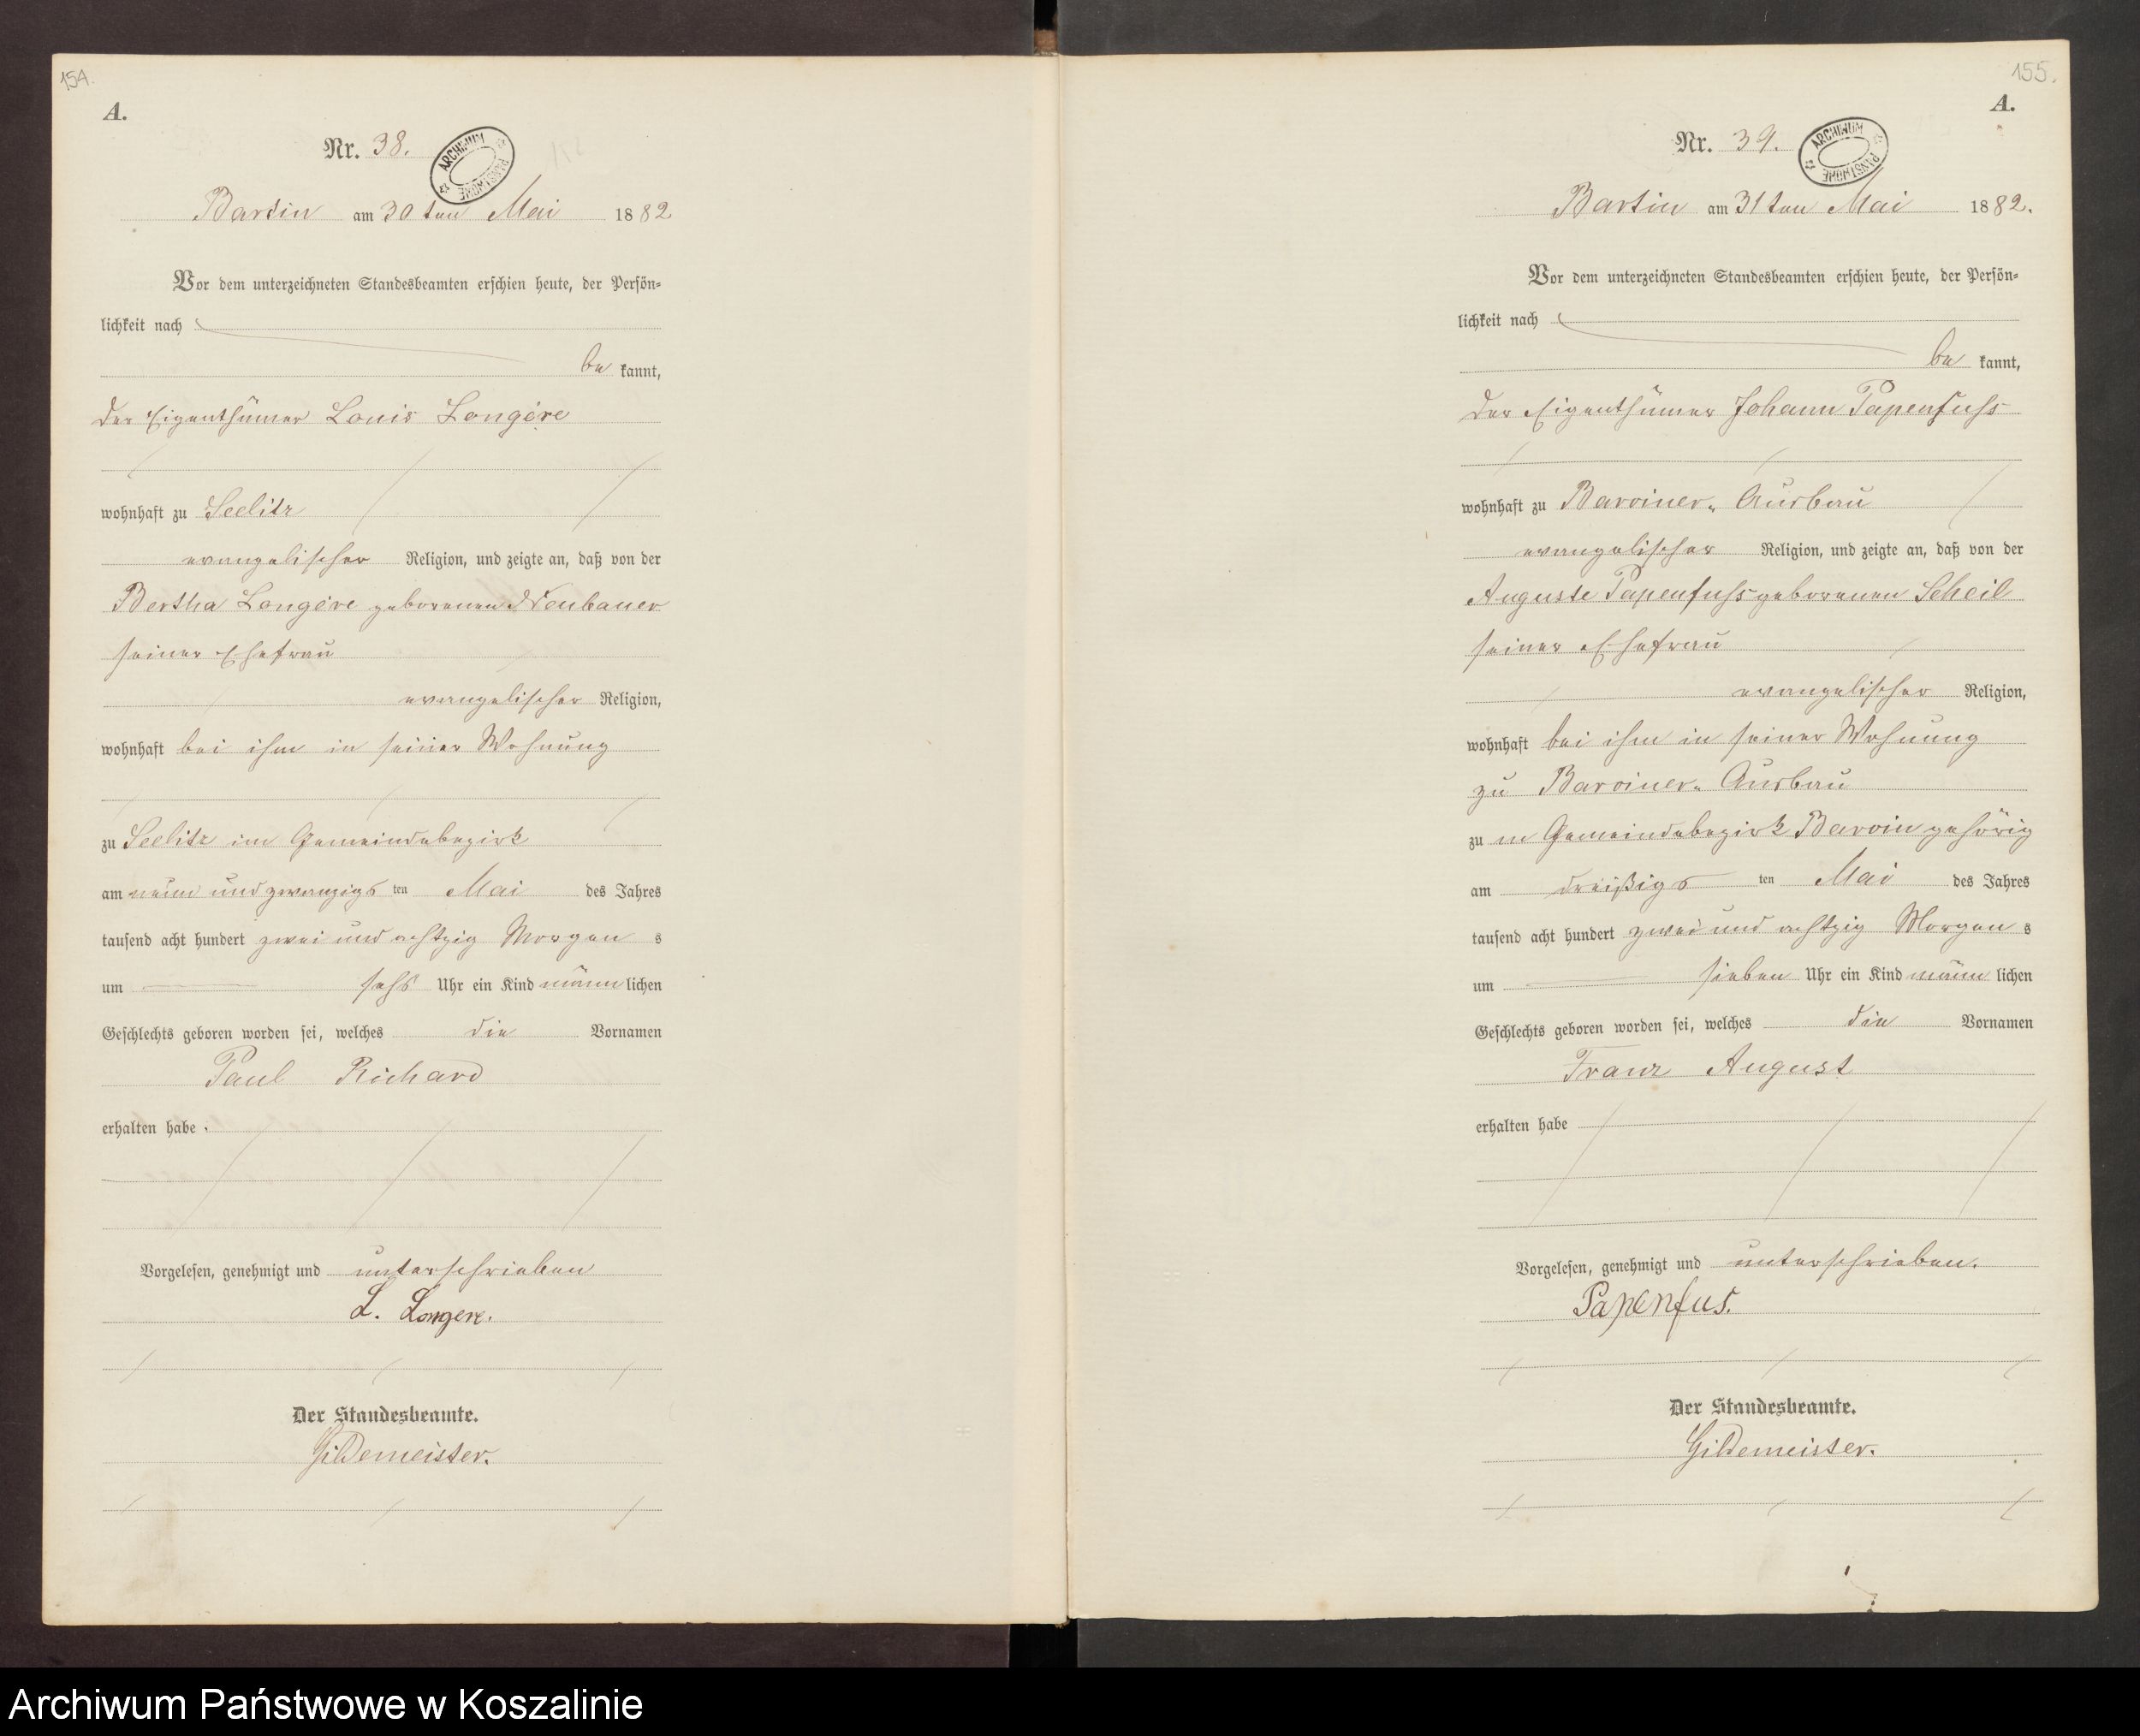 154.
A.
Nr. 38.
ARCHIWUM PAŃSTWOWE
Bartin am 30 ten Mai 1882
Vor dem unterzeichneten Standesbeamten erschien heute, der Persön-
lichkeit nach
be kannt,
der Eigenthümer Louis Longére
wohnhaft zu Seelitz
evangelischer Religion, und zeigte an, daß von der
Bertha Longére geborenen Neubauer
seiner Ehefrau
evangelischer Religion,
wohnhaft bei ihm in seiner Wohnung
zu Seelitz im Gemeindebezirk
am neun und zwanzigs ten Mai des Jahres
tausend acht hundert zwei und achtzig Morgen s
um sechs Uhr ein Kind männ lichen
Geschlechts geboren worden sei, welches die Vornamen
Paul Richard
erhalten habe.
Vorgelesen, genehmigt und unterschrieben
L. Longere.
Der Standesbeamte.
Gildemeister.
155.
A.
Nr. 39.
ARCHIWUM PAŃSTWOWE
Bartin am 31 ten Mai 1882.
Vor dem unterzeichneten Standesbeamten erschien heute, der Persön-
lichkeit nach
be kannt,
der Eigenthümer Johann Papenfuss
wohnhaft zu Barviner-Ausbau
evangelischer Religion, und zeigte an, daß von der
Auguste Papenfuss geborenen Scheil
seiner Ehefrau
evangelischer Religion,
wohnhaft bei ihm in seiner Wohnung
zu Barviner-Ausbau
zu m Gemeindebezirk Barvin gehörig
am dreißigs ten Mai des Jahres
tausend acht hundert zwei und achtzig Morgen s
um sieben Uhr ein Kind männ lichen
Geschlechts geboren worden sei, welches die Vornamen
Franz August
erhalten habe
Vorgelesen, genehmigt und unterschrieben.
Papenfus.
Der Standesbeamte.
Gildemeister.
Archiwum Państwowe w Koszalinie